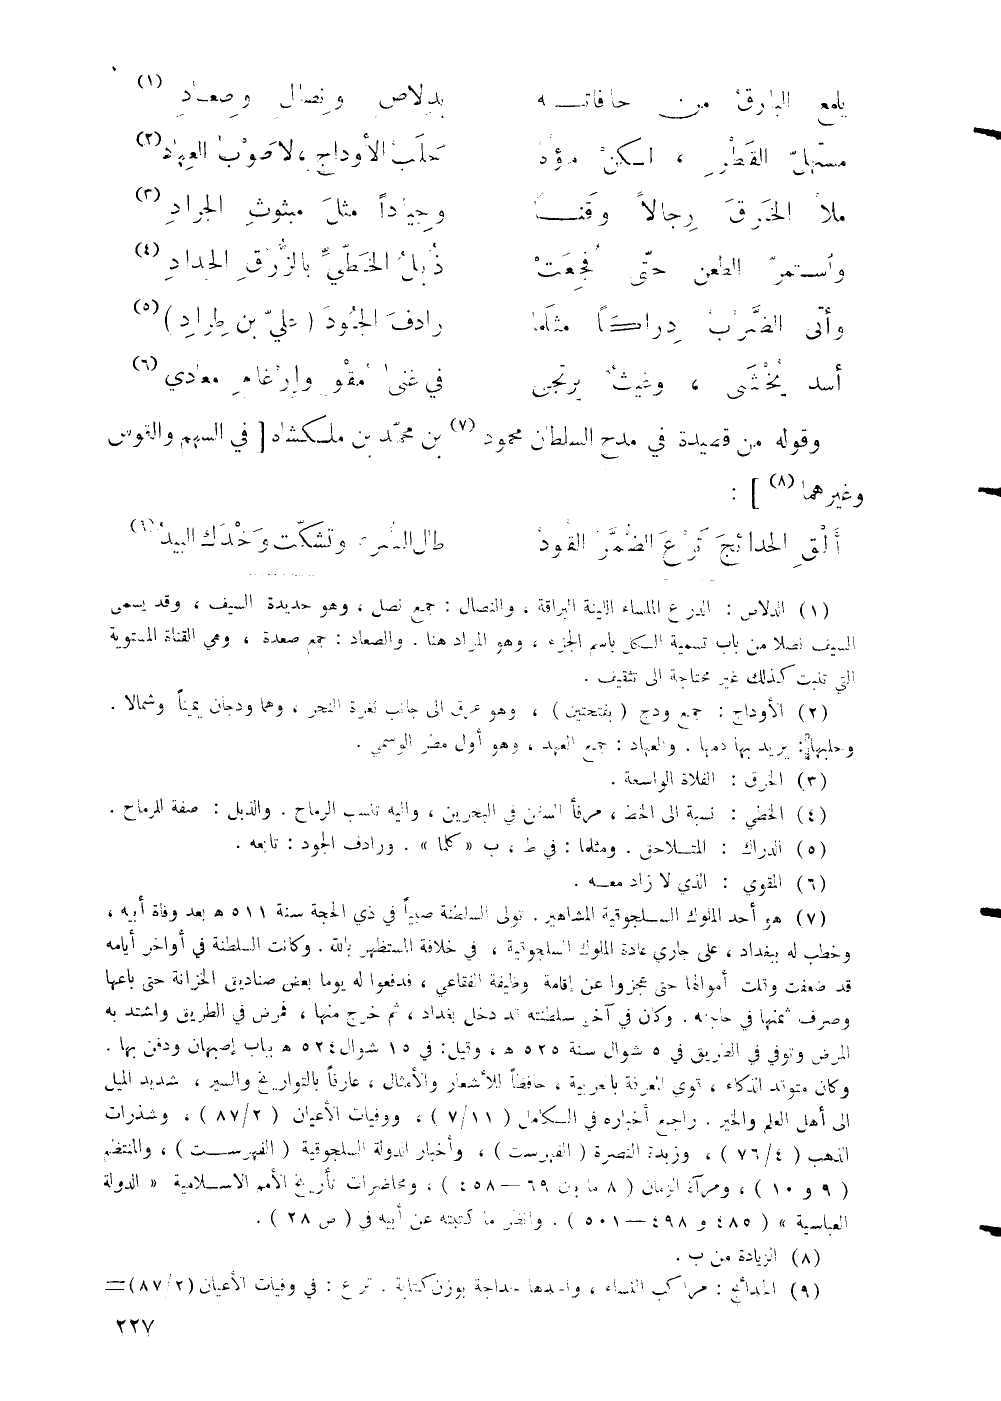 يلمع البارق من حافاتـــه بدلاص ونصال وصعاد (١)
مستهلّ القَطْر ، اسكنْ حَلَبُ الأوداج ، لا صَوْبُ العِهادِ (٢)
ملأ الخَرقَ رِجالاً وقَنــا وجياداً مثلَ مبثوثِ الجرادِ (٣)
وٱستمرّ الطعن حتّى فُجِعَتْ ذُبلُ الخَطّيِّ بالزُّرْقِ الحِدادِ (٤)
وأتى الضَّربُ دِراكــاً مثلَما رادفَ الجُودَ ( عليّ بن طراد ) (٥)
أسد يُخْشَى ، وغيثٌ يرتجى في غنى مُقْوٍ وإرْغامِ معادي (٦)
وقوله من قصيدة في مدح السلطان محمود (٧) بن محمّد بن ملكشاه [ في السهم والقوس
وغيرهما (٨) ] :
أَلْقِ الحدائجَ تَرْعَ الضُمَّرُ القُودُ طال السُّرى وتشكّت وَخْدَكَ البيدُ (٩)
(١) الدلاص : الدرع الملساء اللينة البراقة ، والنصال : جمع نصل ، وهو حديدة السيف ، وقد يسمى
السيف نصلا من باب تسمية الكل باسم الجزء ، وهو المراد هنا . والصعاد : جمع صعدة ، وهي القناة المستوية
التي تنبت كذلك غير محتاجة الى تثقيف .
(٢) الأوداج : جمع ودج ( بفتحتين ) ، وهو عرق الى جانب ثغرة النحر ، وهما ودجان يميناً وشمالا .
وحلبها : يريد بها دمها . والعهاد : جمع العهد ، وهو أول مطر الوسمي .
(٣) الخرق : الفلاة الواسعة .
(٤) الخطي : نسبة الى الخط ، مرفأ السفن في البحرين ، واليه تنسب الرماح . والذبل : صفة للرماح .
(٥) الدراك : المتـلاحق . ومثلما : في ط ، ب «كلما» . ورادف الجود : تابعه .
(٦) المقوي : الذي لا زاد معــه .
(٧) هو أحد الملوك السلجوقية المشاهير . تولى السلطنة صبياً في ذي الحجة سنة ٥١١ هـ بعد وفاة أبيه ،
وخطب له ببغداد ، على جاري عادة الملوك السلجوقية ، في خلافة المستظهر بالله . وكانت السلطنة في أواخر أيامه
قد ضعفت وقلت أموالها حتى عجزوا عن إقامة وظيفة الفقاعي ، فدفعوا له يوما بعض صناديق الخزانة حتى باعها
وصرف ثمنها في حاجته . وكان في آخر سلطنته قد دخل بغداد ، ثم خرج منها ، فمرض في الطريق واشتد به
المرض وتوفي في الطريق في ٥ شوال سنة ٥٢٥ هـ ، وقيل : في ١٥ شوال ٥٢٤ هـ بباب إصبهان ودفن بها .
وكان متوقد الذكاء ، قوي المعرفة بالعربية ، حافظاً للأشعار والأمثال ، عارفاً بالتواريخ والسير ، شديد الميل
الى أهل العلم والخير . راجع أخباره في الكامل ( ٧/١١ ) ، ووفيات الأعيان ( ٨٧/٢ ) ، وشذرات
الذهب ( ٧٦/٤ ) ، وزبدة النصرة ( الفهرست ) ، وأخبار الدولة السلجوقية ( الفهرست ) ، والمنتظم
( ٩ و ١٠ ) ، ومرآة الزمان ( ٨ ما بين ٦٩ — ٤٥٨ ) ، ومحاضرات تأريخ الأمم الاسلامية « الدولة
العباسية » ( ٤٨٥ و ٤٩٨ — ٥٠١ ) . وانظر ما كتبته عن أبيه في ( ص ٢٨ ) .
(٨) الزيادة من ب .
(٩) الحدائج : مراكب النساء ، واحدها حداجة بوزن كتابة . ترع : في وفيات الأعيان (٨٧/٢) =
٢٢٧